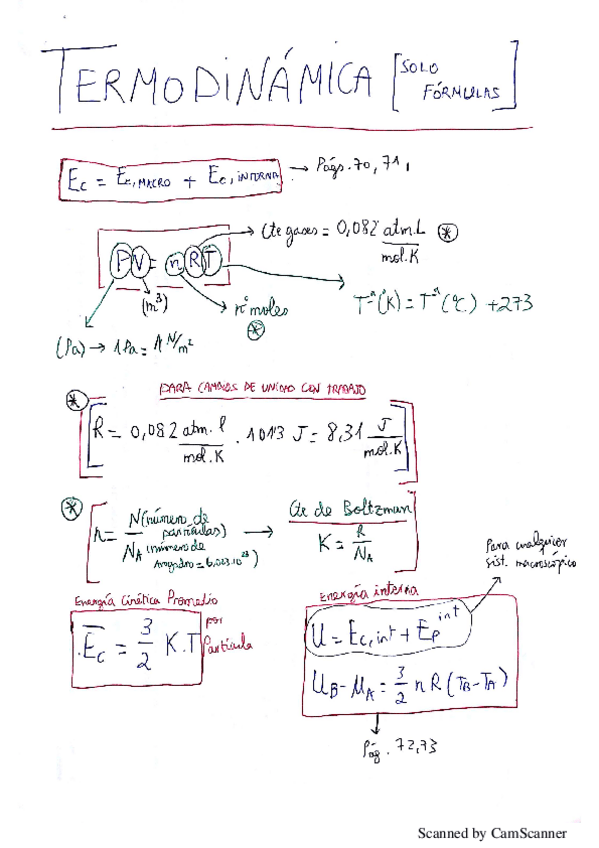 TERMODINÁMICA [SOLO FÓRMULAS]
Ec = Ec,MACRO + Ec,INTERNA → Págs. 70, 71,
PV = nRT
→ Cte gases = 0,082 atm.L / mol.K *
(m³)
nº moles
*
Tª(K) = Tª(ºC) + 273
(Pa) → 1 Pa = 1 N/m²
PARA CAMBIOS DE UNIDAD CON TRABAJO
* [R = 0,082 atm.l / mol.K . 101'3 J = 8,31 J / mol.K]
* [n = N (número de partículas) / NA (número de Avogadro = 6,023.10²³) →
Cte de Boltzman
K = R / NA]
Para cualquier
sist. macroscópico
Energía Cinética Promedio
Ec = 3/2 K.T
por
Partícula
Energía interna
U = Ec,int + Ep int
UB - UA = 3/2 nR (TB - TA)
Pág. 72,73
Scanned by CamScanner